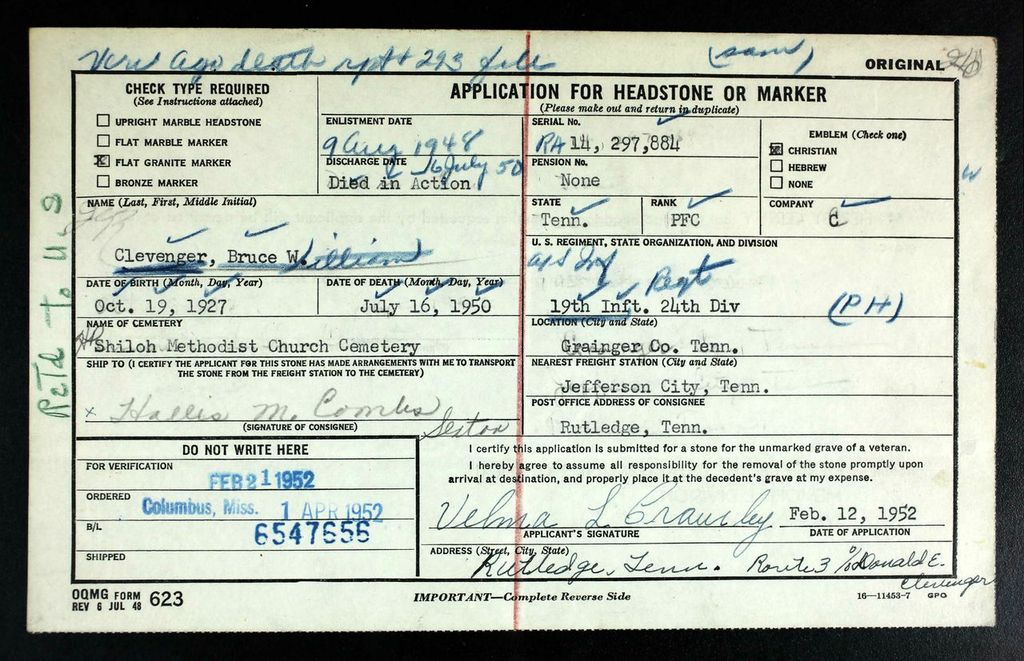 Ver Ago death rpt + 293 file
(sam)
ORIGINAL
CHECK TYPE REQUIRED
(See Instructions attached)
UPRIGHT MARBLE HEADSTONE
FLAT MARBLE MARKER
X FLAT GRANITE MARKER
BRONZE MARKER
APPLICATION FOR HEADSTONE OR MARKER
(Please make out and return in duplicate)
ENLISTMENT DATE
9 Aug 1948
DISCHARGE DATE 16 July 50
Died in Action
SERIAL No.
RA 14, 297,884
PENSION No.
None
STATE
Tenn.
RANK
PFC
EMBLEM (Check one)
X CHRISTIAN
HEBREW
NONE
COMPANY
C
NAME (Last, First, Middle Initial)
Clevenger, Bruce W. illiam
U. S. REGIMENT, STATE ORGANIZATION, AND DIVISION
Inf Regt
19th Inft. 24th Div
(PH)
DATE OF BIRTH (Month, Day, Year)
Oct. 19, 1927
DATE OF DEATH (Month, Day, Year)
July 16, 1950
NAME OF CEMETERY
Shiloh Methodist Church Cemetery
LOCATION (City and State)
Grainger Co. Tenn.
SHIP TO (I CERTIFY THE APPLICANT FOR THIS STONE HAS MADE ARRANGEMENTS WITH ME TO TRANSPORT
THE STONE FROM THE FREIGHT STATION TO THE CEMETERY)
x Hallis M. Combs
(SIGNATURE OF CONSIGNEE)
Sexton
NEAREST FREIGHT STATION (City and State)
Jefferson City, Tenn.
POST OFFICE ADDRESS OF CONSIGNEE
Rutledge, Tenn.
DO NOT WRITE HERE
FOR VERIFICATION
FEB 21 1952
ORDERED
Columbus, Miss. 1 APR 1952
B/L
6547656
SHIPPED
I certify this application is submitted for a stone for the unmarked grave of a veteran.
I hereby agree to assume all responsibility for the removal of the stone promptly upon
arrival at destination, and properly place it at the decedent's grave at my expense.
Velma L. Crawley Feb. 12, 1952
APPLICANT'S SIGNATURE
DATE OF APPLICATION
ADDRESS (Street, City, State)
Rutledge, Tenn. Route 3 % Donald E.
Clevenger
OQMG FORM
REV 6 JUL 48 623
IMPORTANT—Complete Reverse Side
16—11453-7 GPO